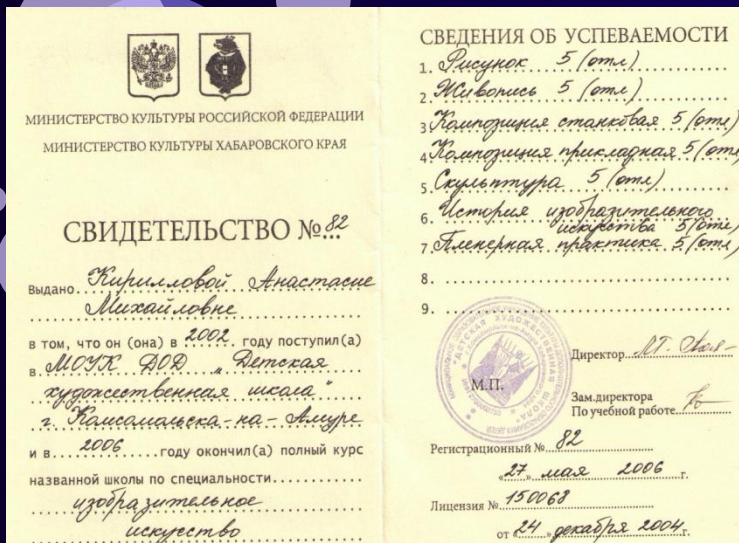 МИНИСТЕРСТВО КУЛЬТУРЫ РОССИЙСКОЙ ФЕДЕРАЦИИ
МИНИСТЕРСТВО КУЛЬТУРЫ ХАБАРОВСКОГО КРАЯ
СВИДЕТЕЛЬСТВО № 82
Выдано Кирилловой Анастасие
Михайловне
в том, что он (она) в 2002 году поступил(а)
в МОУК ДОД „Детская
художественная школа"
г. Комсомольска-на-Амуре
и в 2006 году окончил(а) полный курс
названной школы по специальности
изобразительное
искусство
СВЕДЕНИЯ ОБ УСПЕВАЕМОСТИ
1. Рисунок 5 (отл)
2. Живопись 5 (отл)
3. Композиция станковая 5 (отл)
4. Композиция прикладная 5 (отл)
5. Скульптура 5 (отл)
6. История изобразительного
искусства 5 (отл)
7. Пленерная практика 5 (отл)
8.
9.
ДЕТСКАЯ ХУДОЖЕСТВЕННАЯ ШКОЛА
М.П.
Директор
Зам.директора
По учебной работе
Регистрационный № 82
„27" мая 2006 г.
Лицензия № 150068
от „24" декабря 2004 г.